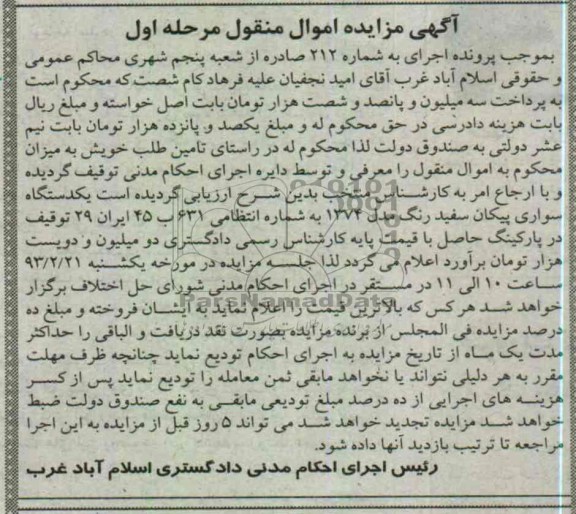 آگهی مزایده اموال منقول مرحله اول
بموجب پرونده اجرای به شماره ۲۱۲ صادره از شعبه پنجم شهری محاکم عمومی
و حقوقی اسلام آباد غرب آقای امید نجفیان علیه فرهاد کام شصت که محکوم است
به پرداخت سه میلیون و پانصد و شصت هزار تومان بابت اصل خواسته و مبلغ ریال
بابت هزینه دادرسی در حق محکوم له و مبلغ یکصد و پانزده هزار تومان بابت نیم
عشر دولتی به صندوق دولت لذا محکوم له در راستای تامین طلب خویش به میزان
محکوم به اموال منقول را معرفی و توسط دایره اجرای احکام مدنی توقیف گردیده
و با ارجاع امر به کارشناس بدین شرح ارزیابی گردیده است یکدستگاه
سواری پیکان سفید رنگ مدل ۱۳۷۴ به شماره انتظامی ۶۳۱ ب ۴۵ ایران ۲۹ توقیف
در پارکینگ حاصل با قیمت پایه کارشناس رسمی دادگستری دو میلیون و دویست
هزار تومان برآورد اعلام می گردد لذا جلسه مزایده در مورخه یکشنبه ۹۳/۲/۲۱
ساعت ۱۰ الی ۱۱ در مستقر در اجرای احکام مدنی شورای حل اختلاف برگزار
خواهد شد هر کس که بالاترین قیمت را اعلام نماید به ایشان فروخته و مبلغ ده
درصد مزایده فی المجلس از برنده مزایده بصورت نقد دریافت و الباقی را حداکثر
مدت یک ماه از تاریخ مزایده به اجرای احکام تودیع نماید چنانچه ظرف مهلت
مقرر به هر دلیلی نتواند یا نخواهد مابقی ثمن معامله را تودیع نماید پس از کسر
هزینه های اجرایی از ده درصد مبلغ تودیعی مابقی به نفع صندوق دولت ضبط
خواهد شد مزایده تجدید خواهد شد می تواند ۵ روز قبل از مزایده به این اجرا
مراجعه تا ترتیب بازدید آنها داده شود.
رئیس اجرای احکام مدنی دادگستری اسلام آباد غرب
ParsNamadData